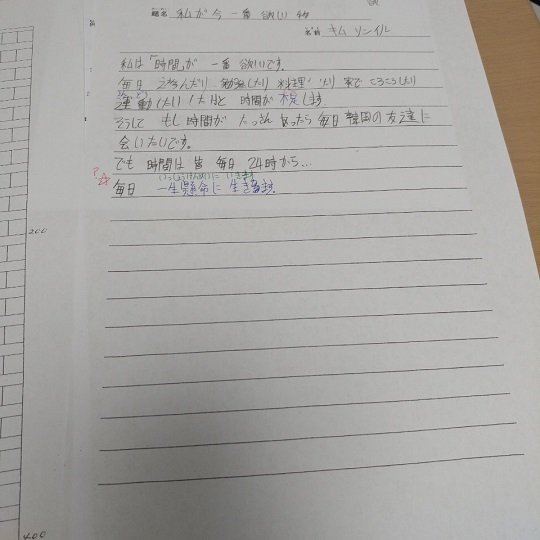 題名 私が今一番欲しい物
名前 キム ソンイル
私は「時間」が 一番 欲しいです。
毎日 え 勉強したり 料理 たり 家で ごろごろしたり
うんどう
運動したり すると 時間が します
そうして もし 時間が たくさん あったら 毎日 韓国の 友達に
会いたいです。
でも 時間は 皆 毎日 24時から...
いっしょうけんめいに いきます
毎日 一生懸命に 生きます。
200
400